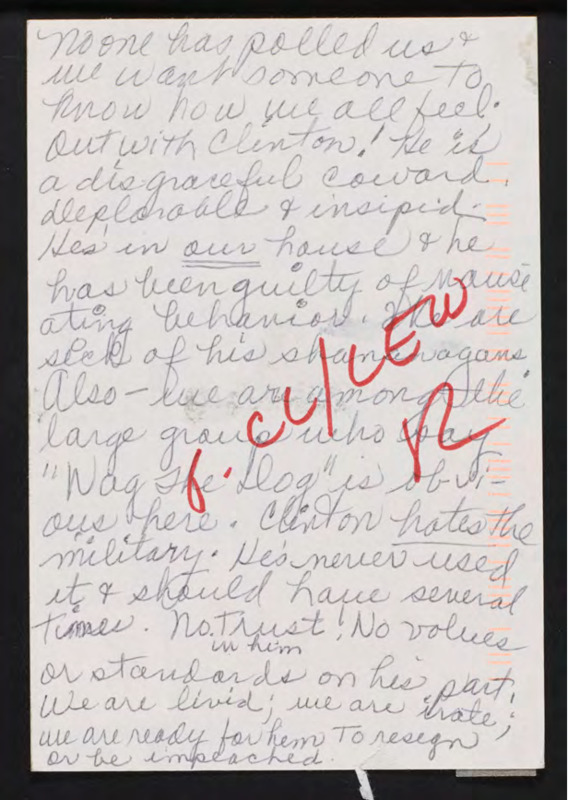 No one has polled us &
we want someone to
know how we all feel.
Out with Clinton! He is
a disgraceful coward,
deplorable & insipid.
He's in our house & he
has been guilty of nause
ating behavior. We are
sick of his shananagans
Also - we are among the
large group who say
"Wag the Dog" is obvi-
ous here. Clinton hates the
military. He's never used
it & should have several
times. No trust! No values
in him
or standards on his part.
We are livid; we are irate;
we are ready for him to resign
or be impeached.
f. CL/LEW
R